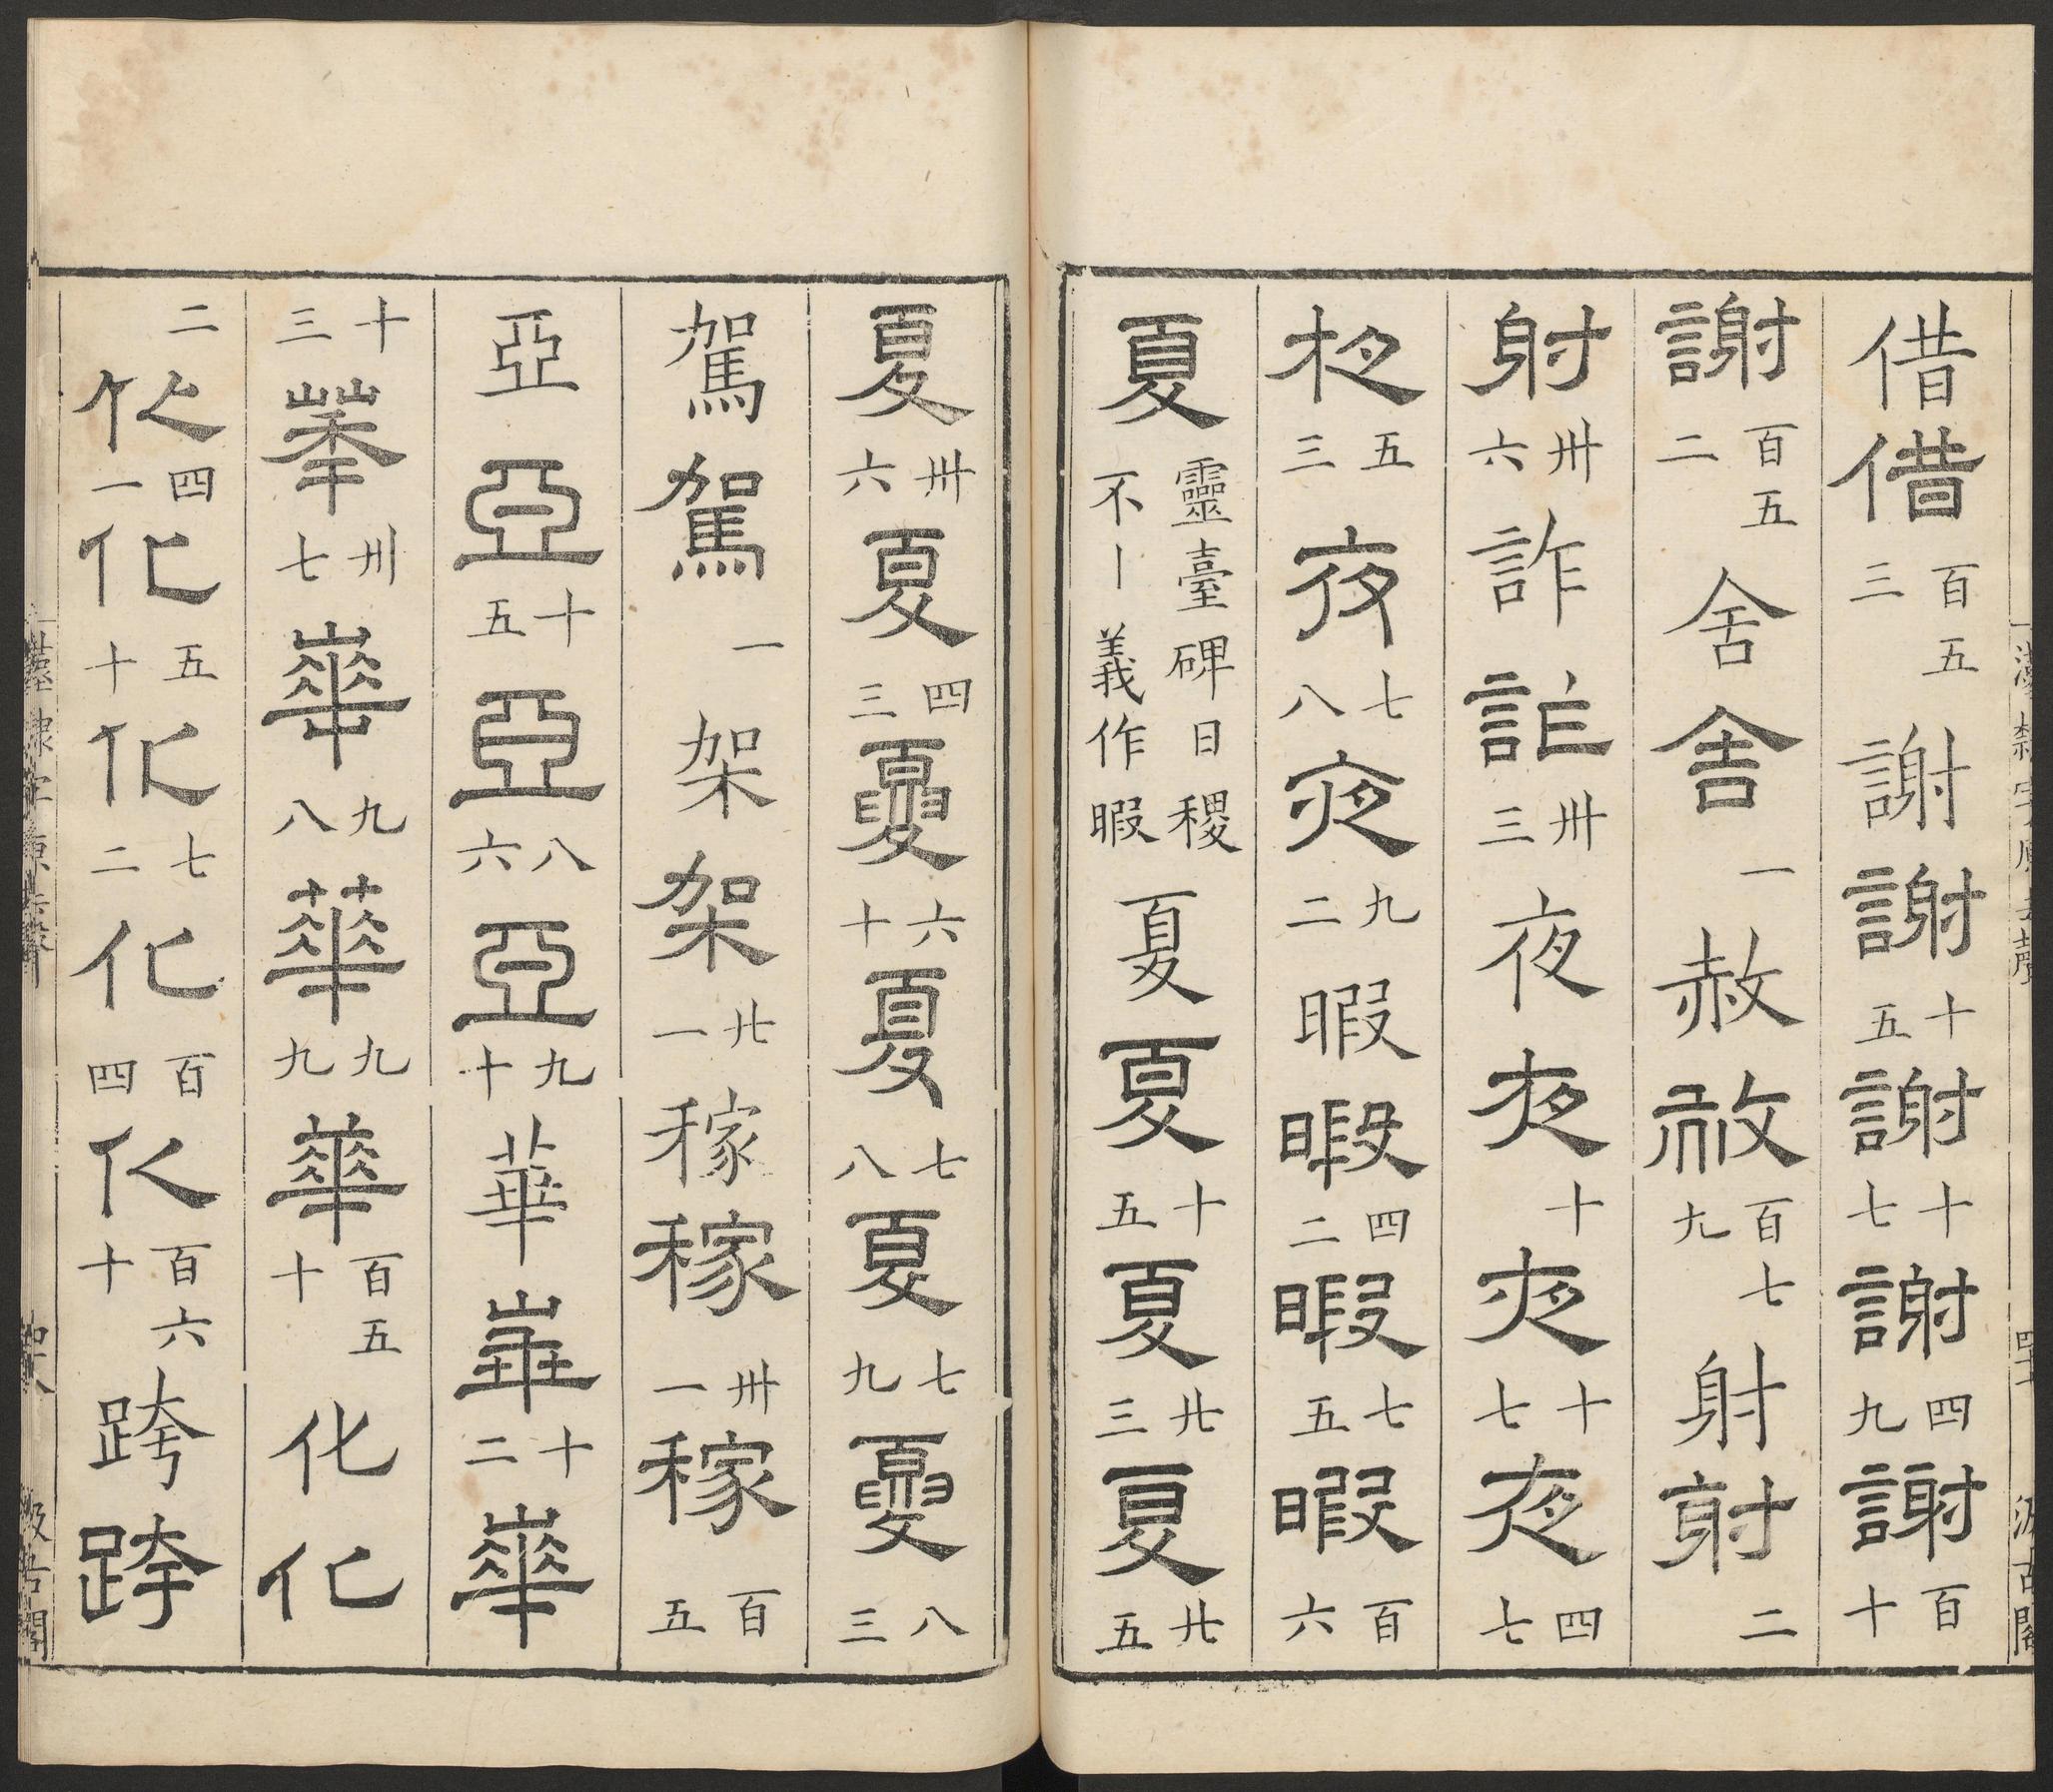 借借百五三謝謝十五謝十七謝四九謝百十
謝百五二舍舍一赦赦百七九射射二
射卅六詐詐卅三夜夜十夜十七夜四七
夜五三夜七八夜九二暇暇四二暇七五暇百六
夏靈臺碑日稷不丨義作暇夏夏十五夏廿三夏廿五
夏卅六夏四三夏六十夏七八夏七九夏八三
駕駕一架架廿一稼稼卅一稼百五
亞亞十五亞八六亞九十華華十二華
十三華卅七華九八華九九華百五十化化
二化四一化五十化七二化百四化百六十跨跨
漢隸字源去聲
汲古閣